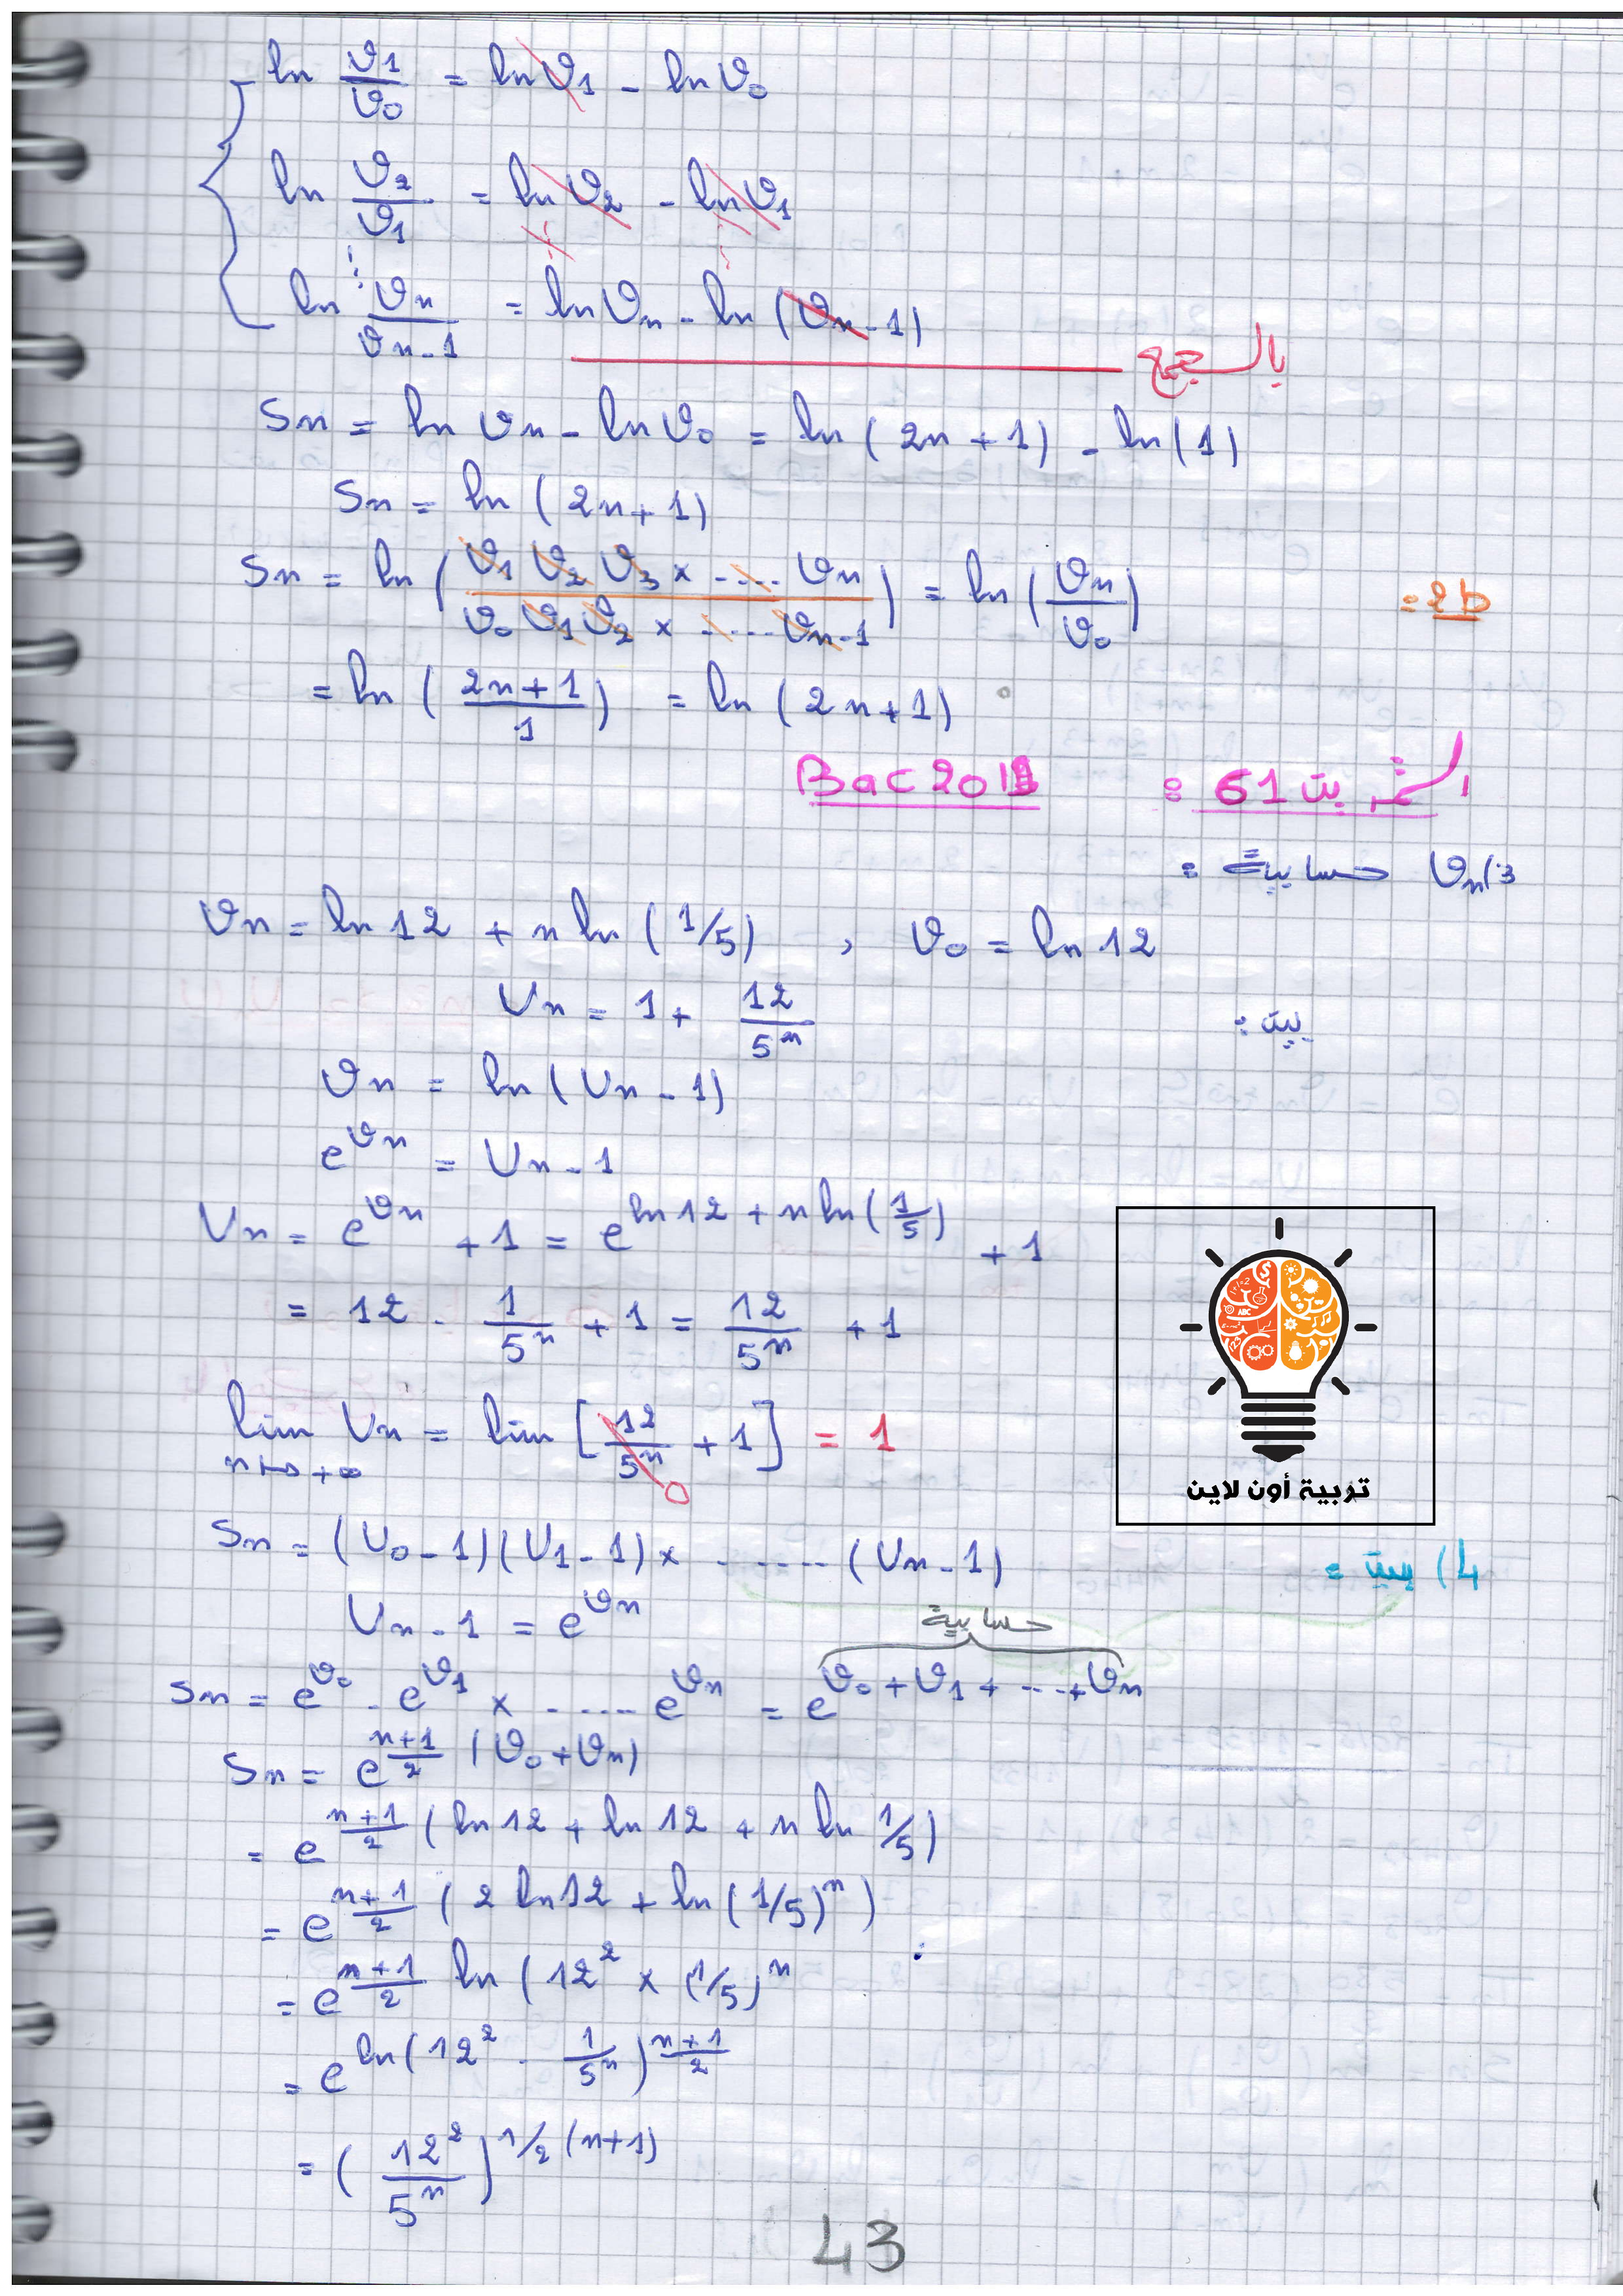 ln v1/v0 = ln v1 - ln v0
ln v2/v1 = ln v2 - ln v1
ln vn/vn-1 = ln vn - ln (vn-1)
بالجمع
Sn = ln vn - ln v0 = ln (2n+1) - ln(1)
Sn = ln (2n+1)
Sn = ln ( v1 v2 v3 × ..... vn / v0 v1 v2 × ..... vn-1 ) = ln ( vn / v0 )
= ln ( 2n+1 / 1 ) = ln (2n+1)
التمرين 61 : Bac 2011
3) vn حسابية :
vn = ln 12 + n ln (1/5) , v0 = ln 12
بين :
Un = 1 + 12/5^n
vn = ln (Un - 1)
e^vn = Un - 1
Un = e^vn + 1 = e^(ln 12 + n ln (1/5)) + 1
= 12 . 1/5^n + 1 = 12/5^n + 1
lim Un = lim [ 12/5^n + 1 ] = 1
n→+∞
0
تربية أون لاين
4) بين :
Sn = (U0 - 1)(U1 - 1) × ....... (Un - 1)
Un - 1 = e^vn
حسابية
Sn = e^v0 . e^v1 × ...... e^vn = e^(v0 + v1 + ...+ vn)
Sn = e^(n+1)/2 (v0 + vn)
= e^(n+1)/2 (ln 12 + ln 12 + n ln 1/5)
= e^(n+1)/2 (2 ln 12 + ln (1/5)^n)
= e^(n+1)/2 ln (12^2 × (1/5)^n
= e^ln (12^2 . 1/5^n)^(n+1)/2
= ( 12^2 / 5^n )^1/2 (n+1)
43